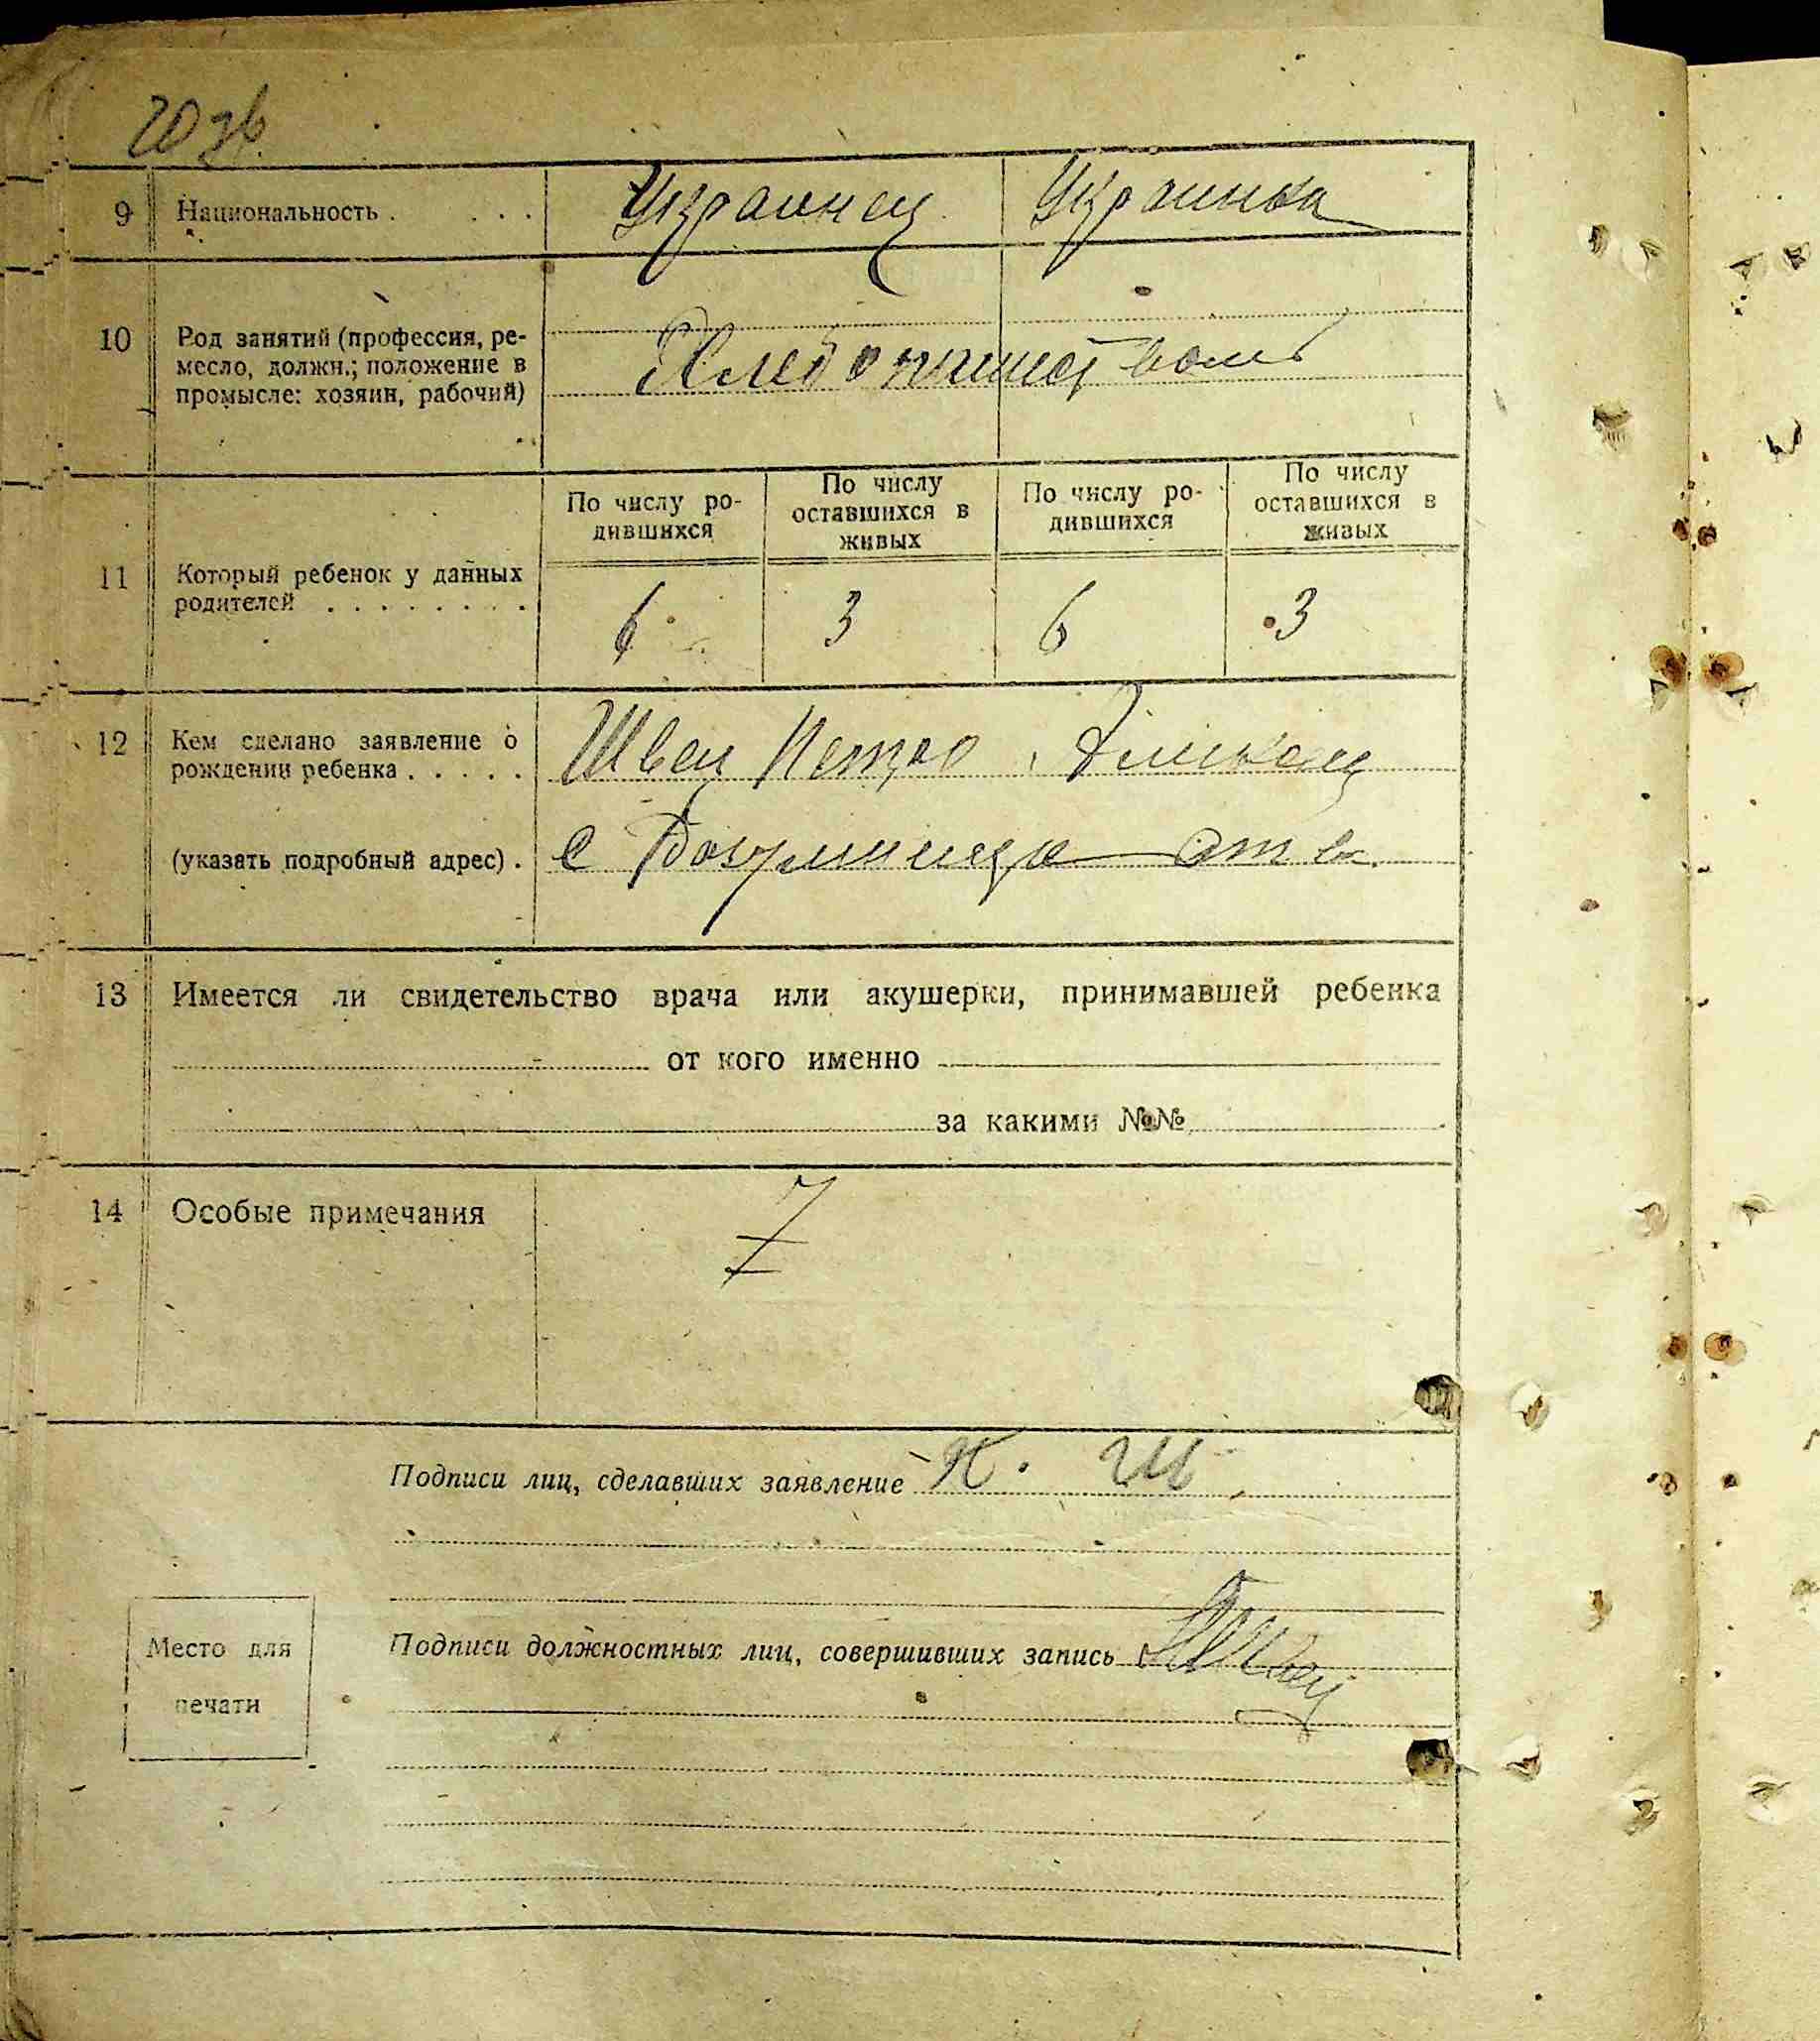 20 зв.
9 Национальность . . . . Украинец Украинка
10 Род занятий (профессия, ре-
месло, должн.; положение в
промысле: хозяин, рабочий)
Хлебопашеством
По числу ро-
дившихся
По числу
оставшихся в
живых
По числу ро-
дившихся
По числу
оставшихся в
живых
11 Который ребенок у данных
родителей . . . . . . . .
6 3 6 3
12 Кем сделано заявление о
рождении ребенка . . . . .
Швец Петро
(указать подробный адрес) .
с
13 Имеется ли свидетельство врача или акушерки, принимавшей ребенка
от кого именно
за какими №№
14 Особые примечания
Подписи лиц, сделавших заявление П. Ш
Подписи должностных лиц, совершивших запись
Место для
печати